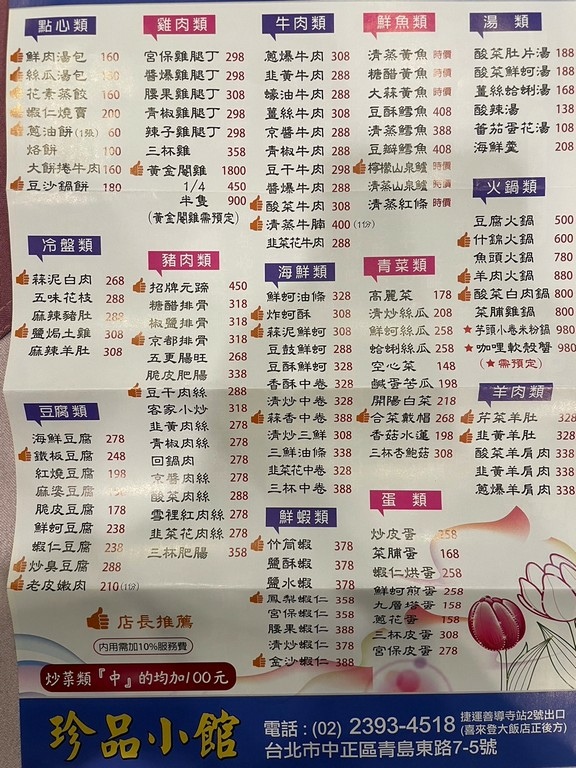 點心類
鮮肉湯包 160
絲瓜湯包
花素蒸餃 160
蝦仁燒賣 200
蔥油餅(1張) 60
烙餅 100
大餅捲牛肉 160
豆沙鍋餅 180
冷盤類
蒜泥白肉 268
五味花枝 288
麻辣豬肚 288
鹽焗土雞 308
麻辣羊肚 308
豆腐類
海鮮豆腐 278
鐵板豆腐 248
紅燒豆腐 198
麻婆豆腐
脆皮豆腐 178
鮮蚵豆腐 238
蝦仁豆腐 238
炒臭豆腐 288
老皮嫩肉 210(1份)
店長推薦
內用需加10%服務費
炒菜類『中』的均加100元
雞肉類
宮保雞腿丁 298
醬爆雞腿丁 298
腰果雞腿丁 308
青椒雞腿丁 298
辣子雞腿丁 298
三杯雞 358
黃金閹雞 1800
1/4 450
半隻 900
(黃金閹雞需預定)
豬肉類
招牌元蹄 450
糖醋排骨 318
椒鹽排骨 318
京都排骨 318
五更腸旺 268
脆皮肥腸 338
豆干肉絲 288
客家小炒 318
韭黃肉絲 278
青椒肉絲 278
回鍋肉 278
京醬肉絲 278
酸菜肉絲 288
雪裡紅肉絲 278
韭菜花肉絲 278
三杯肥腸 358
牛肉類
蔥爆牛肉 308
韭黃牛肉 288
蠔油牛肉 288
薑絲牛肉 308
京醬牛肉 288
青椒牛肉 288
豆干牛肉 298
醬爆牛肉 288
酸菜牛肉 308
清蒸牛腩 400(1份)
韭菜花牛肉 288
海鮮類
鮮蚵油條 328
炸蚵酥 308
蒜泥鮮蚵 308
豆鼓鮮蚵 288
豆酥鮮蚵 308
香酥中卷 328
清炒中卷 358
蒜香中卷 388
清炒三鮮 308
三鮮油條 338
韭菜花中卷 328
三杯中卷 388
鮮蝦類
竹筒蝦 378
鹽酥蝦 378
鹽水蝦 378
鳳梨蝦仁 358
宮保蝦仁 358
腰果蝦仁 388
清炒蝦仁 378
金沙蝦仁 388
鮮魚類
清蒸黃魚 時價
糖醋黃魚 時價
大蒜黃魚 時價
豆酥鱈魚 408
清蒸鱈魚 388
豆瓣鱈魚 408
檸檬山泉鱸 時價
清蒸山泉鱸 時價
清蒸紅條 時價
青菜類
高麗菜 178
清炒絲瓜 208
鮮蚵絲瓜 258
蛤蜊絲瓜 258
空心菜 148
鹹蛋苦瓜 198
開陽白菜 218
合菜戴帽 268
香菇水蓮 198
三杯杏鮑菇 308
蛋類
炒皮蛋 258
菜脯蛋 168
蝦仁烘蛋 258
鮮蚵煎蛋 258
九層塔蛋 158
蔥花蛋 158
三杯皮蛋 308
宮保皮蛋 278
湯類
酸菜肚片湯 188
酸菜鮮蚵湯 188
薑絲蛤蜊湯 168
酸辣湯 138
蕃茄蛋花湯 108
海鮮羹 208
火鍋類
豆腐火鍋 500
什錦火鍋 600
魚頭火鍋 780
羊肉火鍋 880
酸菜白肉鍋 800
菜脯雞鍋 800
★芋頭小卷米粉鍋 980
★咖哩軟殼蟹 980
(★需預定)
羊肉類
芹菜羊肚 328
韭黃羊肚 328
酸菜羊肩肉 338
韭黃羊肩肉 338
蔥爆羊肩肉 338
珍品小館
電話:(02) 2393-4518
捷運善導寺站2號出口
(喜來登大飯店正後方)
台北市中正區青島東路7-5號